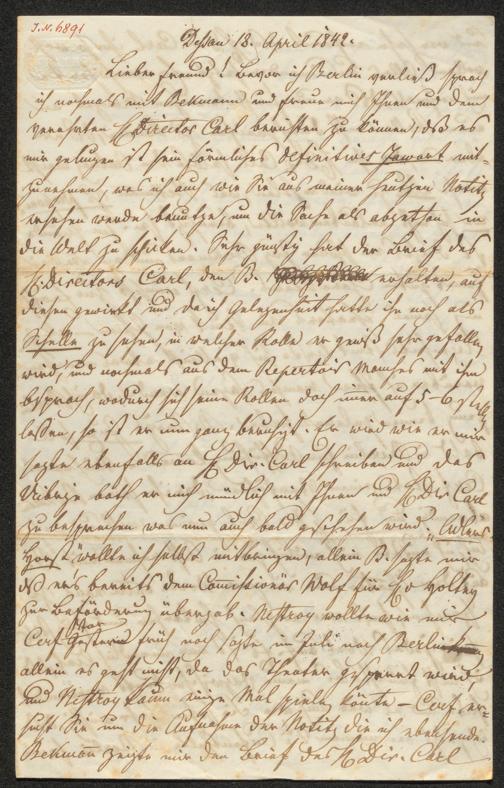 J.N. 6891
Dessau 18. April 1842.
Lieber Freund! Bevor ich Berlin verließ sprach
ich nochmals mit Bekmann und freue mich Ihnen und dem
verehrten H Director Carl berichten zu können, dß es
mir gelungen ist sein förmliches definitives Jawort mit-
zunehmen, was ich auch wie Sie aus meiner heutigen Notitz
ersehen werden benutze, um die Sache als abgethan in
die Welt zu schicken. Sehr günstig hat der Brief des
H. Directors Carl, den B. erhalten, auf
diesen gewirkt und da ich Gelegenheit hatte ihn noch als
Schelle zu sehen, in welcher Rolle er gewiß sehr gefallen
wird, und nochmals aus dem Repertoir Manches mit ihm
besprach, wodurch sich seine Rollen doch imer auf 5-6 stellen
lassen, so ist er nun ganz beruhigt. Er wird wie er mir
sagte ebenfalls an H Dir. Carl schreiben und das
Uibrige bath er mich mündlich mit Ihnen und H Dir Carl
zu besprechen was nun auch bald geschehen wird. "Adlers
Horst" wollte ich selbst mitbringen, allein B. sagte mir
dß ers bereits dem Comissionär Wolf für H v Holtey
zur Beförderung übergab. Nestroy wollte wie mir
Cerf gestern früh noch sagte im Juli nach Berlin
allein es geht nicht, da das Theater gesperrt wird,
und Nestroy kaum einige Mal spielen könte – Cerf er-
sucht Sie um die Aufnahme der Notitz die ich
Bekman zeigte mir den Brief des H Dir. Carl